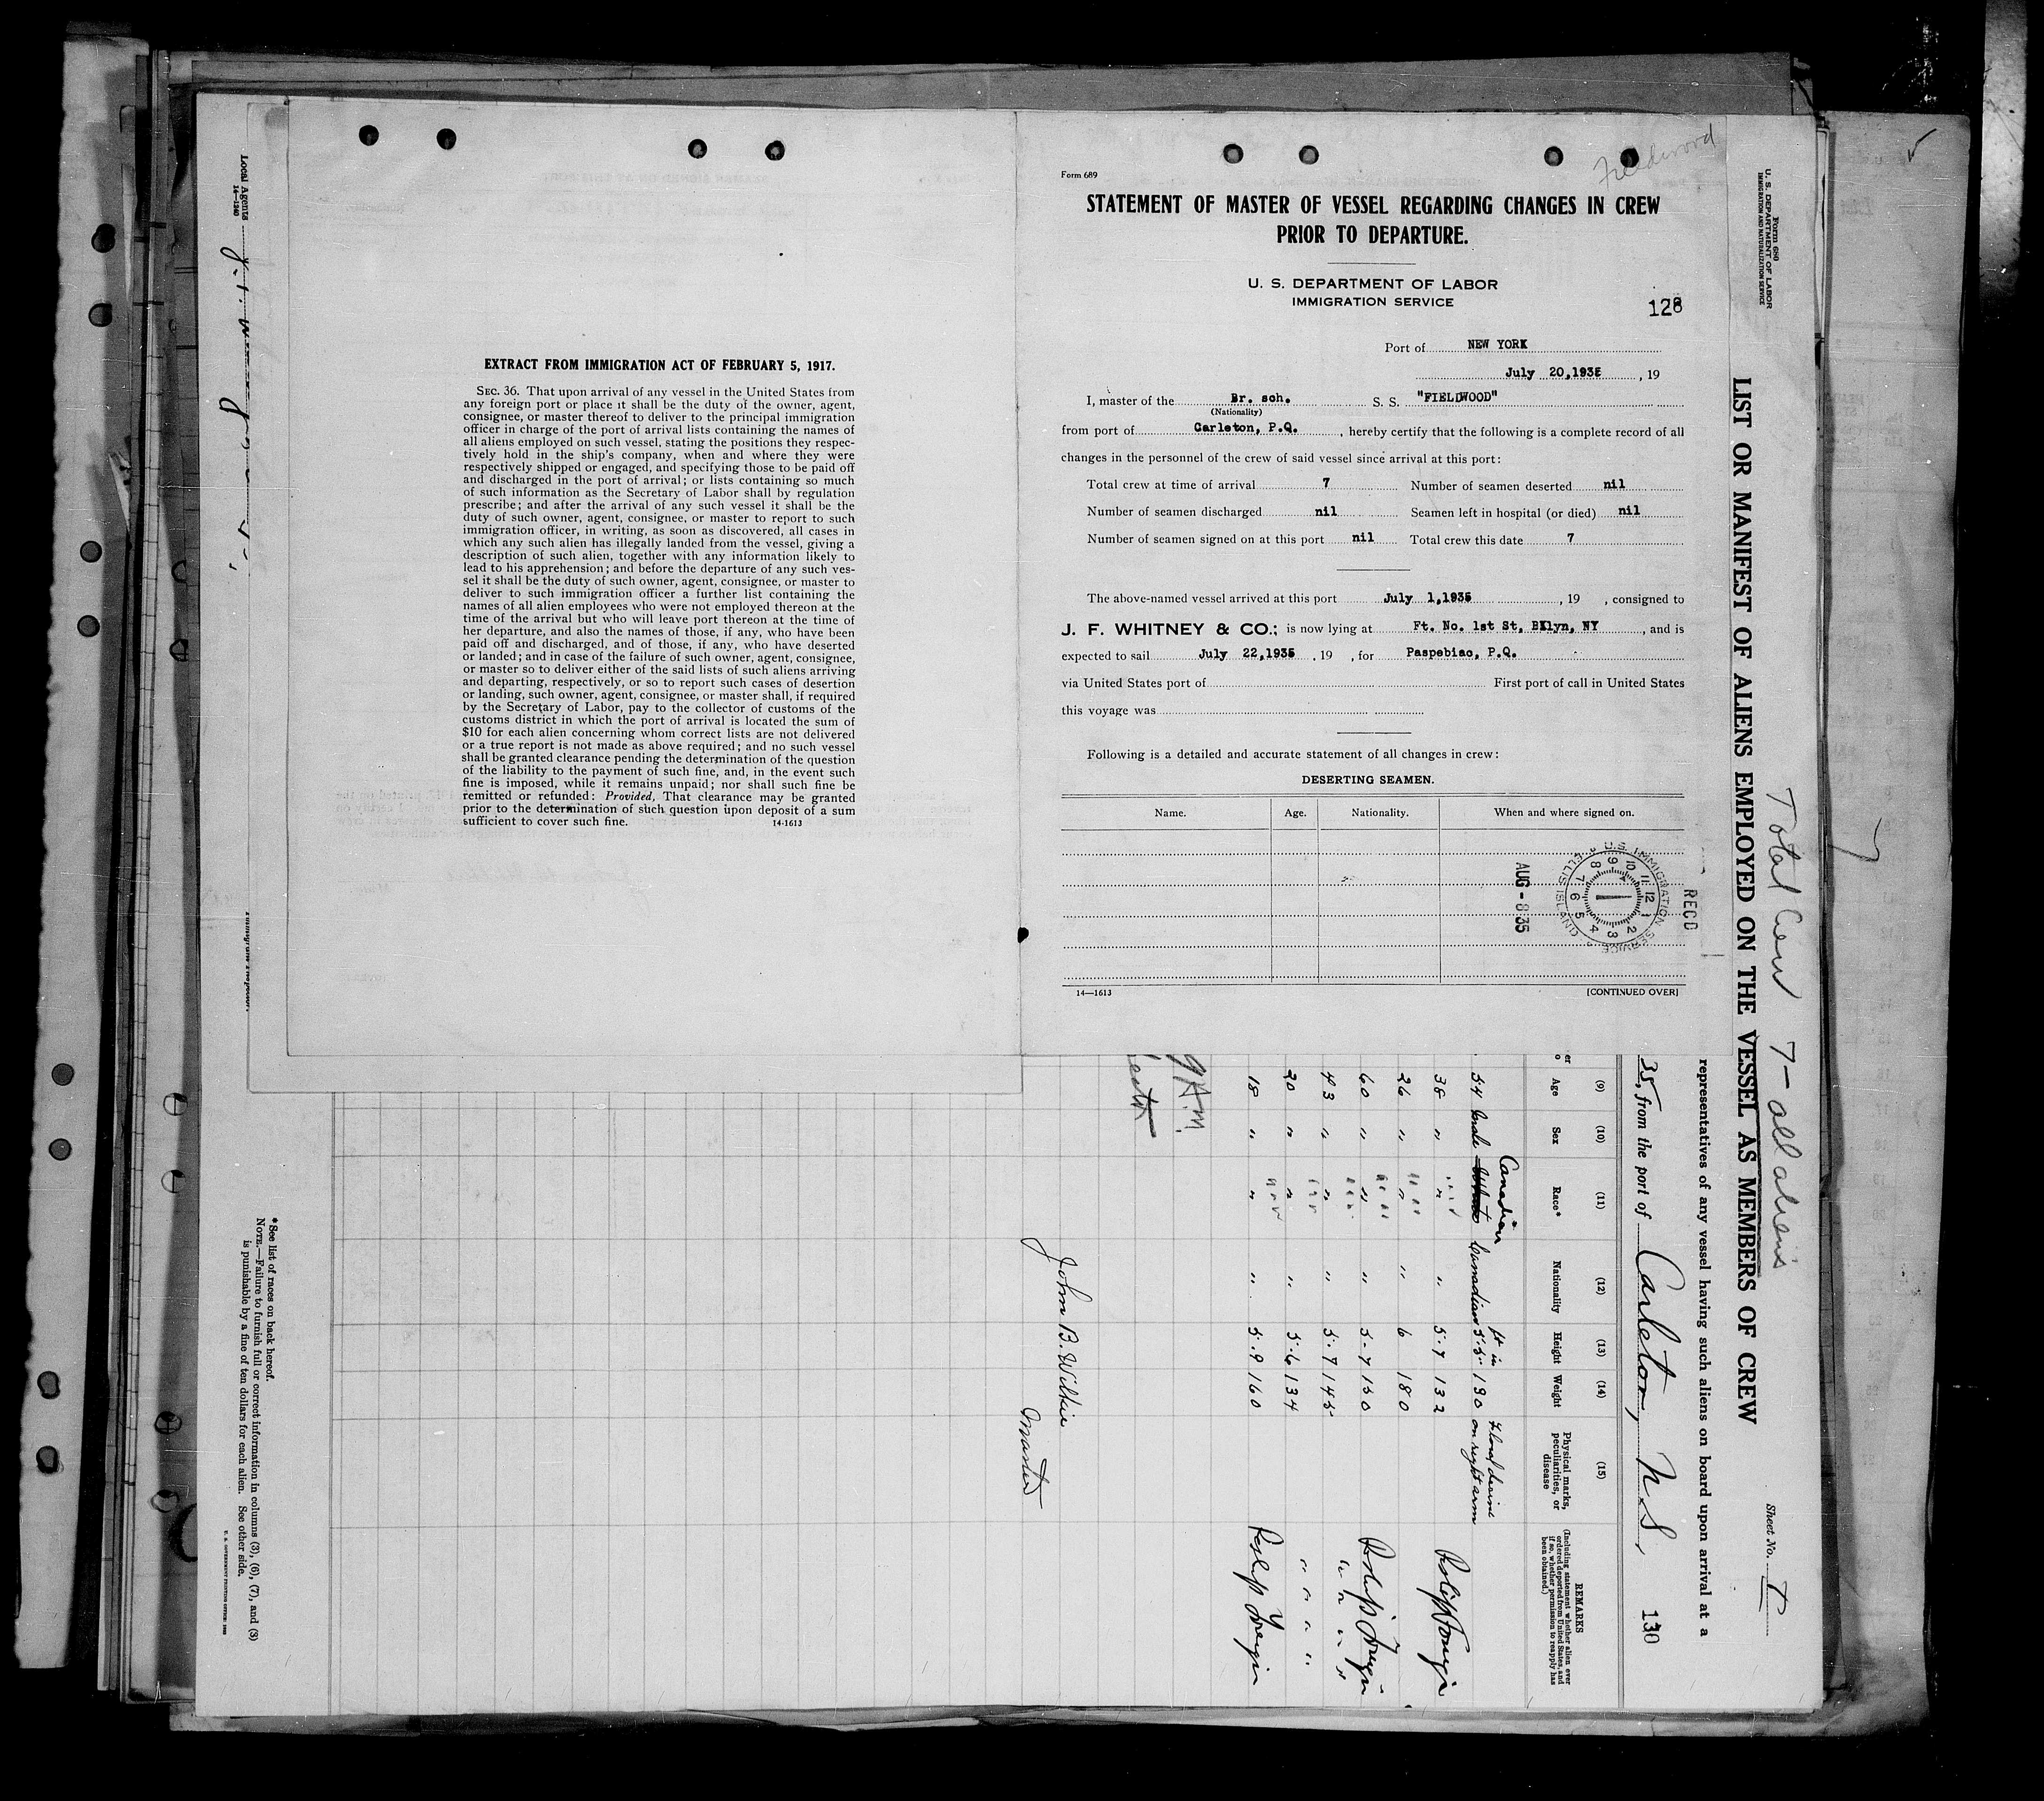 EXTRACT FROM IMMIGRATION ACT OF FEBRUARY 5, 1917.
SEC. 36. That upon arrival of any vessel in the United States from
any foreign port or place it shall be the duty of the owner, agent,
consignee, or master thereof to deliver to the principal immigration
officer in charge of the port of arrival lists containing the names of
all aliens employed on such vessel, stating the positions they respec-
tively hold in the ship's company, when and where they were
respectively shipped or engaged, and specifying those to be paid off
and discharged in the port of arrival; or lists containing so much
of such information as the Secretary of Labor shall by regulation
prescribe; and after the arrival of any such vessel it shall be the
duty of such owner, agent, consignee, or master to report to such
immigration officer, in writing, as soon as discovered, all cases in
which any such alien has illegally landed from the vessel, giving a
description of such alien, together with any information likely to
lead to his apprehension; and before the departure of any such ves-
sel it shall be the duty of such owner, agent, consignee, or master to
deliver to such immigration officer a further list containing the
names of all alien employees who were not employed thereon at the
time of the arrival but who will leave port thereon at the time of
her departure, and also the names of those, if any, who have been
paid off and discharged, and of those, if any, who have deserted
or landed; and in case of the failure of such owner, agent, consignee,
or master so to deliver either of the said lists of such aliens arriving
and departing, respectively, or so to report such cases of desertion
or landing, such owner, agent, consignee, or master shall, if required
by the Secretary of Labor, pay to the collector of customs of the
customs district in which the port of arrival is located the sum of
$10 for each alien concerning whom correct lists are not delivered
or a true report is not made as above required; and no such vessel
shall be granted clearance pending the determination of the question
of the liability to the payment of such fine, and, in the event such
fine is imposed, while it remains unpaid; nor shall such fine be
remitted or refunded: Provided, That clearance may be granted
prior to the determination of such question upon deposit of a sum
sufficient to cover such fine. 14-1613
Form 689
STATEMENT OF MASTER OF VESSEL REGARDING CHANGES IN CREW
PRIOR TO DEPARTURE.
U. S. DEPARTMENT OF LABOR
IMMIGRATION SERVICE
128
Port of NEW YORK
July 20,1935, 19
I, master of the Br. sch. S. S. "FIELDWOOD"
(Nationality)
from port of Carleton, P.Q., hereby certify that the following is a complete record of all
changes in the personnel of the crew of said vessel since arrival at this port:
Total crew at time of arrival 7 Number of seamen deserted nil
Number of seamen discharged nil Seamen left in hospital (or died) nil
Number of seamen signed on at this port nil Total crew this date 7
The above-named vessel arrived at this port July 1,1935, 19 , consigned to
J. F. WHITNEY & CO.; is now lying at Ft. No. 1st St, BKlyn, NY, and is
expected to sail July 22,1935, 19 , for Paspebiac, P.Q.
via United States port of First port of call in United States
this voyage was
Following is a detailed and accurate statement of all changes in crew:
DESERTING SEAMEN.
Name. Age. Nationality. When and where signed on.
RECD
U. S. IMMIGRATION SERVICE ELLIS ISLAND
AUG - 8 35
14—1613 [CONTINUED OVER]
Form 680
U. S. DEPARTMENT OF LABOR
IMMIGRATION AND NATURALIZATION SERVICE
Total Crew 7 – all aliens
Sheet No. 1
LIST OR MANIFEST OF ALIENS EMPLOYED ON THE VESSEL AS MEMBERS OF CREW
representatives of any vessel having such aliens on board upon arrival at a
35, from the port of Carleton, N.S, 130
(9) (10) (11) (12) (13) (14) (15)
Age Sex Race* Nationality Height Weight Physical marks, peculiarities, or disease
REMARKS
(Including statement whether alien ever ordered deported from United States, and if so, whether permission to reapply has been obtained.)
Canadian ft in Floral design
54 male White Canadian 5.5 130 on right arm
38 " " " 5.7 132
26 " " " 6 180
60 " " " 5-7 150
43 " " " 5.7 145
20 " " " 5.6 134
18 " " " 5.9 160
9 A.M.
John B. Wilkie
Master
Local Agents
14—1240
Immigrant Inspector.
* See list of races on back hereof.
NOTE.—Failure to furnish full or correct information in columns (3), (6), (7), and (3)
is punishable by a fine of ten dollars for each alien. See other side.
U. S. GOVERNMENT PRINTING OFFICE